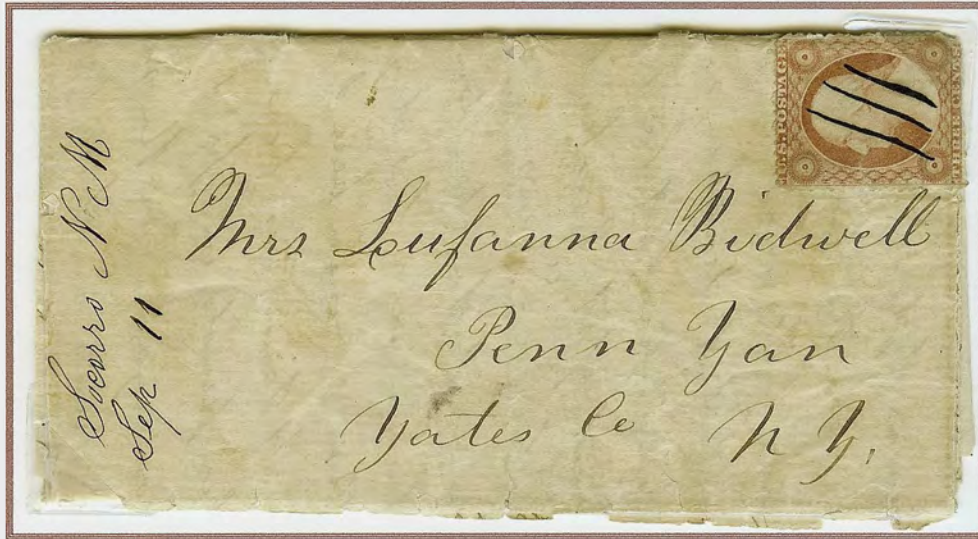 Socorro N M
Sep 11
U.S. POSTAGE
THREE CENTS
Mrs Lufanna Bidwell
Penn Yan
Yates Co N Y.